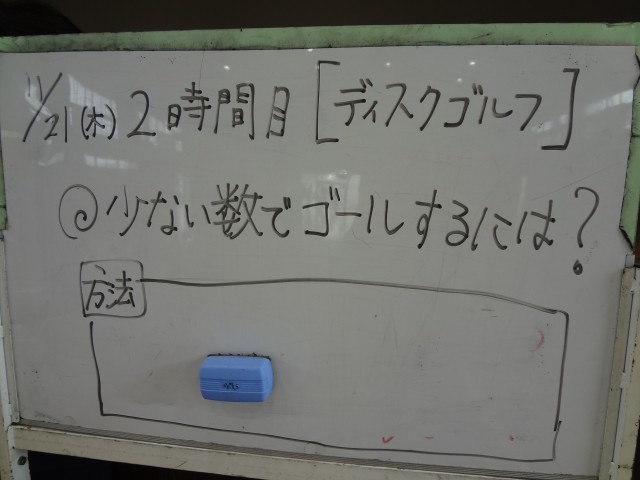 11/21(木) 2時間目 [ディスクゴルフ]
◎少ない数でゴールするには?
方法